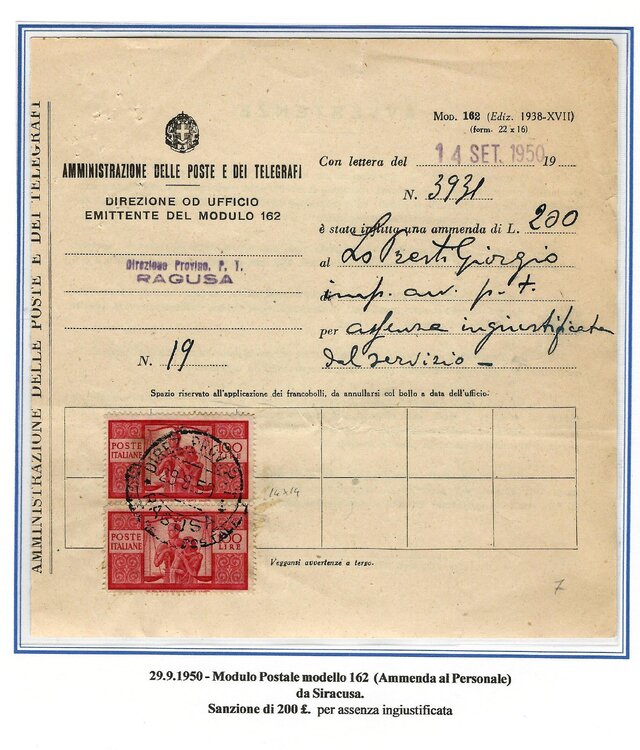 AMMINISTRAZIONE DELLE POSTE E DEI TELEGRAFI
AMMINISTRAZIONE DELLE POSTE E DEI TELEGRAFI
DIREZIONE OD UFFICIO
EMITTENTE DEL MODULO 162
Direzione Provinc. P. T.
RAGUSA
N. 19
MOD. 162 (Ediz. 1938-XVII)
(form. 22 x 16)
Con lettera del 14 SET. 1950 19
N. 3931
è stata inflitta una ammenda di L. 200
al Lo Presti Giorgio
imp. av. p. t.
per assenza ingiustificata
dal servizio –
Spazio riservato all'applicazione dei francobolli, da annullarsi col bollo a data dell'ufficio.
POSTE
ITALIANE
DIREZ. PROV.
RAGUSA
14x14
POSTE
ITALIANE
LIRE
Veggansi avvertenze a tergo.
7
29.9.1950 - Modulo Postale modello 162 (Ammenda al Personale)
da Siracusa.
Sanzione di 200 £. per assenza ingiustificata